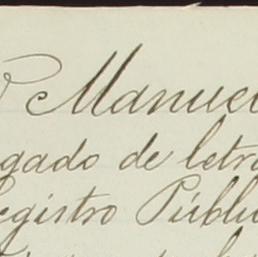 Manuel
gado de letra
egistro Públic